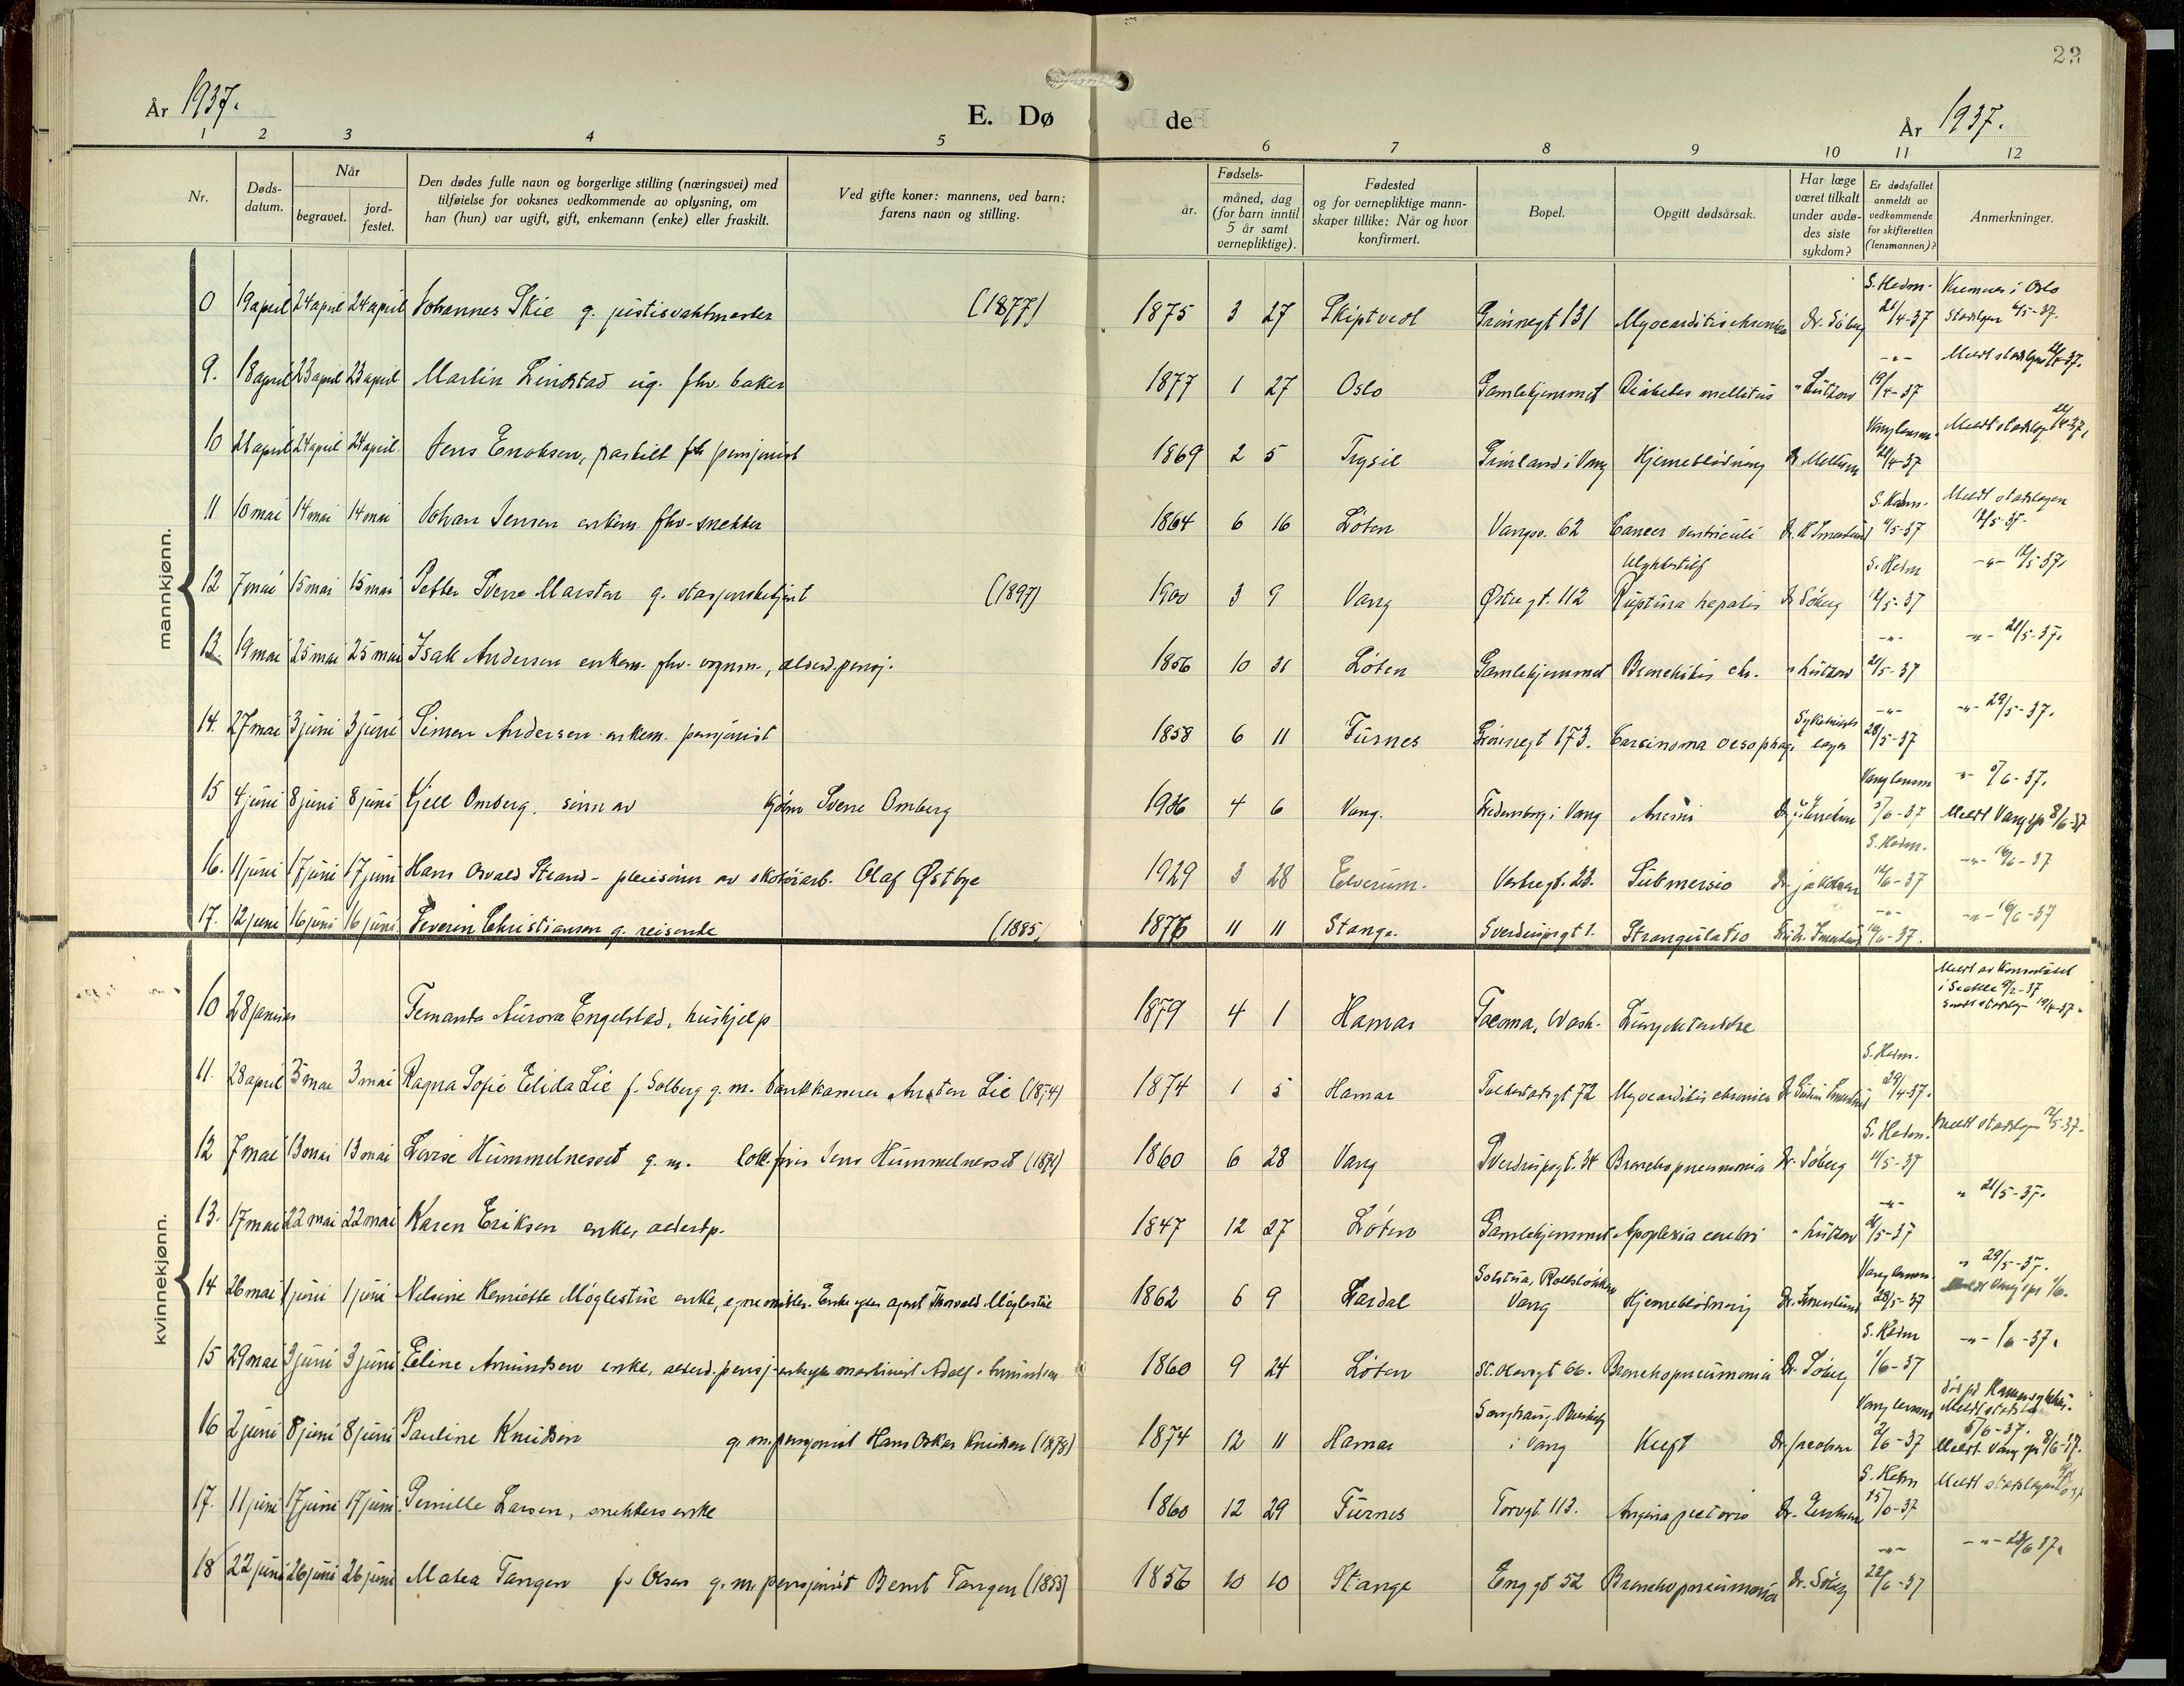 23
År 1937.
E. Dø de
År 1937.
1 2 3 4 5 6 7 8 9 10 11 12
Nr.
Døds-
datum.
Når
begravet.
jord-
festet.
Den dødes fulle navn og borgerlige stilling (næringsvei) med
tilføielse for voksnes vedkommende av oplysning, om
han (hun) var ugift, gift, enkemann (enke) eller fraskilt.
Ved gifte koner: mannens, ved barn:
farens navn og stilling.
Fødsels-
år.
måned, dag
(for barn inntil
5 år samt
vernepliktige).
Fødested
og for vernepliktige mann-
skaper tillike: Når og hvor
konfirmert.
Bopel.
Opgitt dødsårsak.
Har læge
været tilkalt
under avdø-
des siste
sykdom?
Er dødsfallet
anmeldt av
vedkommende
for skifteretten
(lensmannen)?
Anmerkninger.
mannkjønn.
19 april 24 april 24 april Johannes Skie g. justisvaktmester (1877) 1875 3 27 Skiptvedt Grønnegt 131 Myocarditis chronica Dr. Søberg S. Hedm. 21/4-37 Kremeres i Oslo
9. 18 april 23 april 23 april Martin Lindstad ug. fhv. baker 1877 1 27 Oslo Gamlehjemmet Diabetes mellitus " Lützow -"- 19/4-37
10 21 april 24 april 24 april Jens Enoksen, fraskilt pensjonist 1869 2 5 Trysil Grønland i Vang Hjerneblødning Vang lensm.
11 10 mai 14 mai 14 mai Johan Jensen enkem. fhv. snekker 1864 6 16 Løten Vangsv. 62 Cancer ventriculi S. Hedm. 11/5-37 Meldt statslegen 12/5-37.
12 7 mai 15 mai 15 mai Petter Sverre Marsten g. stasjonsbetjent (1897) 1900 3 9 Vang Østregt. 112 Ulykkestilf Ruptura hepatis Dr Søberg S. Hedm -"- 12/5-37.
13. 19 mai 25 mai 25 mai Isak Andersen enkem. fhv. vognm., alderd.pensj. 1856 10 31 Løten Gamlehjemmet Bronchitis chr. " Lützow -"- 21/5-37 -"- 21/5-37.
14. 27 mai 3 juni 3 juni Simen Andersen enkem. pensjonist 1858 6 11 Furnes Grønnegt 173. Carcinoma oesophagi -"- 28/5-37 -"- 29/5-37.
15 4 juni 8 juni 8 juni Kjell Omberg, sønn av Sverre Omberg 1936 4 6 Vang. i Vang Anemi Vang lensm 5/6-37 -"- 5/6-37. Meldt Vang spr 8/6-37
16. 11 juni 17 juni 17 juni Hans Osvald Strand - pleiesønn av skotøiarb. Olaf Østbye 1929 3 28 Elverum. Vestregt. 23. Submersio S. Hedm. 12/6-37 -"- 16/6-37
17. 12 juni 16 juni 16 juni Severin Christiansen g. reisende (1885) 1876 11 11 Stange. Sverdrupsgt 1. Strangulatio -"- -"- 16/6-37
kvinnekjønn.
10 28 januar Fernanda Aurora Engelstad, hushjelp 1879 4 1 Hamar Tacoma, Wash. Meldt av Konsulatet
i Seattle 9/2-37
11. 28 april 3 mai 3 mai Ragna Sofie Elida Lie f. Solberg g. m. bankkasserer Lie (1874) 1874 1 5 Hamar Myocarditis chronica S. Hedm. 29/4-37.
12 7 mai 13 mai 13 mai Lovise Hummelnesset g. m. Jens Hummelnesset 1860 6 28 Vang Sverdrupsgt. 34 Bronchopneumonia Dr. Søberg S. Hedm. 11/5-37 Meldt statslegen 12/5-37.
13. 17 mai 22 mai 22 mai Karen Eriksen enke, alderd.p. 1847 12 27 Løten Gamlehjemmet Apoplexia cerebri " Lützow -"- " 21/5-37.
14 26 mai 1 juni 1 juni Nelsine Henriette Møglestue enke, egne midler. Enke efter agent Thorvald Møglestue 1862 6 9 Solstua, Rollsløkken Vang Hjerneblødning Dr. Smerlund Vang lensm. 28/5-37 " 29/5-37.
15 29 mai 3 juni 3 juni Eline Amundsen enke, alderd.pensj. enke efter maskinist Adolf Amundsen 1860 9 24 Løten St. Olavsgt 66. Bronchopneumonia Dr. Søberg S. Hedm 1/6-37 -"- 1/6-37.
16 2 juni 8 juni 8 juni Pauline Knudsen g. m. pensjonist Hans Oskar Knudsen (1878) 1874 12 11 Hamar i Vang Kreft Dr. Jacobsen Vang lensm 5/6-37. Meldt Vang spr 8/6-37.
17. 11 juni 17 juni 17 juni Pernille Larsen, snekkers enke 1860 12 29 Furnes Torvgt. 113. Angina pectoris S. Hedm 15/6-37 Meldt statslegen
18 22 juni 26 juni 26 juni Matea Tangen f. Olsen g. m. pensjonist Bernt Tangen (1855) 1856 10 10 Stange Enggt 52 Bronchopneumonia Dr. Søberg -"- 22/6-37 -"- 23/6 37.